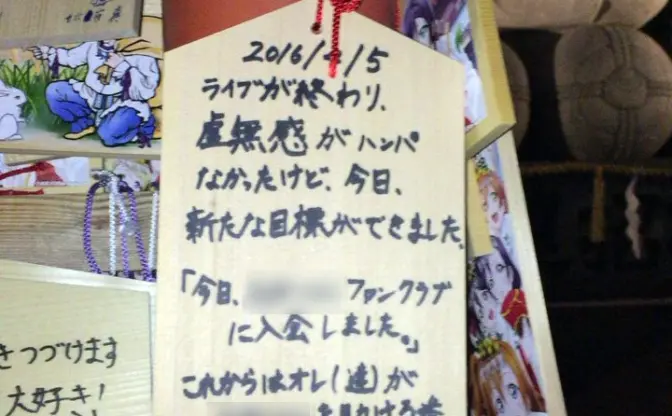 2016/4/5
ライブが終わり、
虚無感がハンパ
なかったけど、今日、
新たな目標ができました。
「今日、ファンクラブ
に入会しました。」
これからはオレ(達)が
きつづけます
大好き!